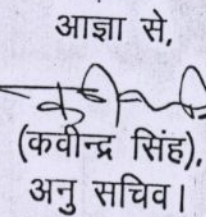 आज्ञा से,
(कवीन्द्र सिंह),
अनु सचिव।